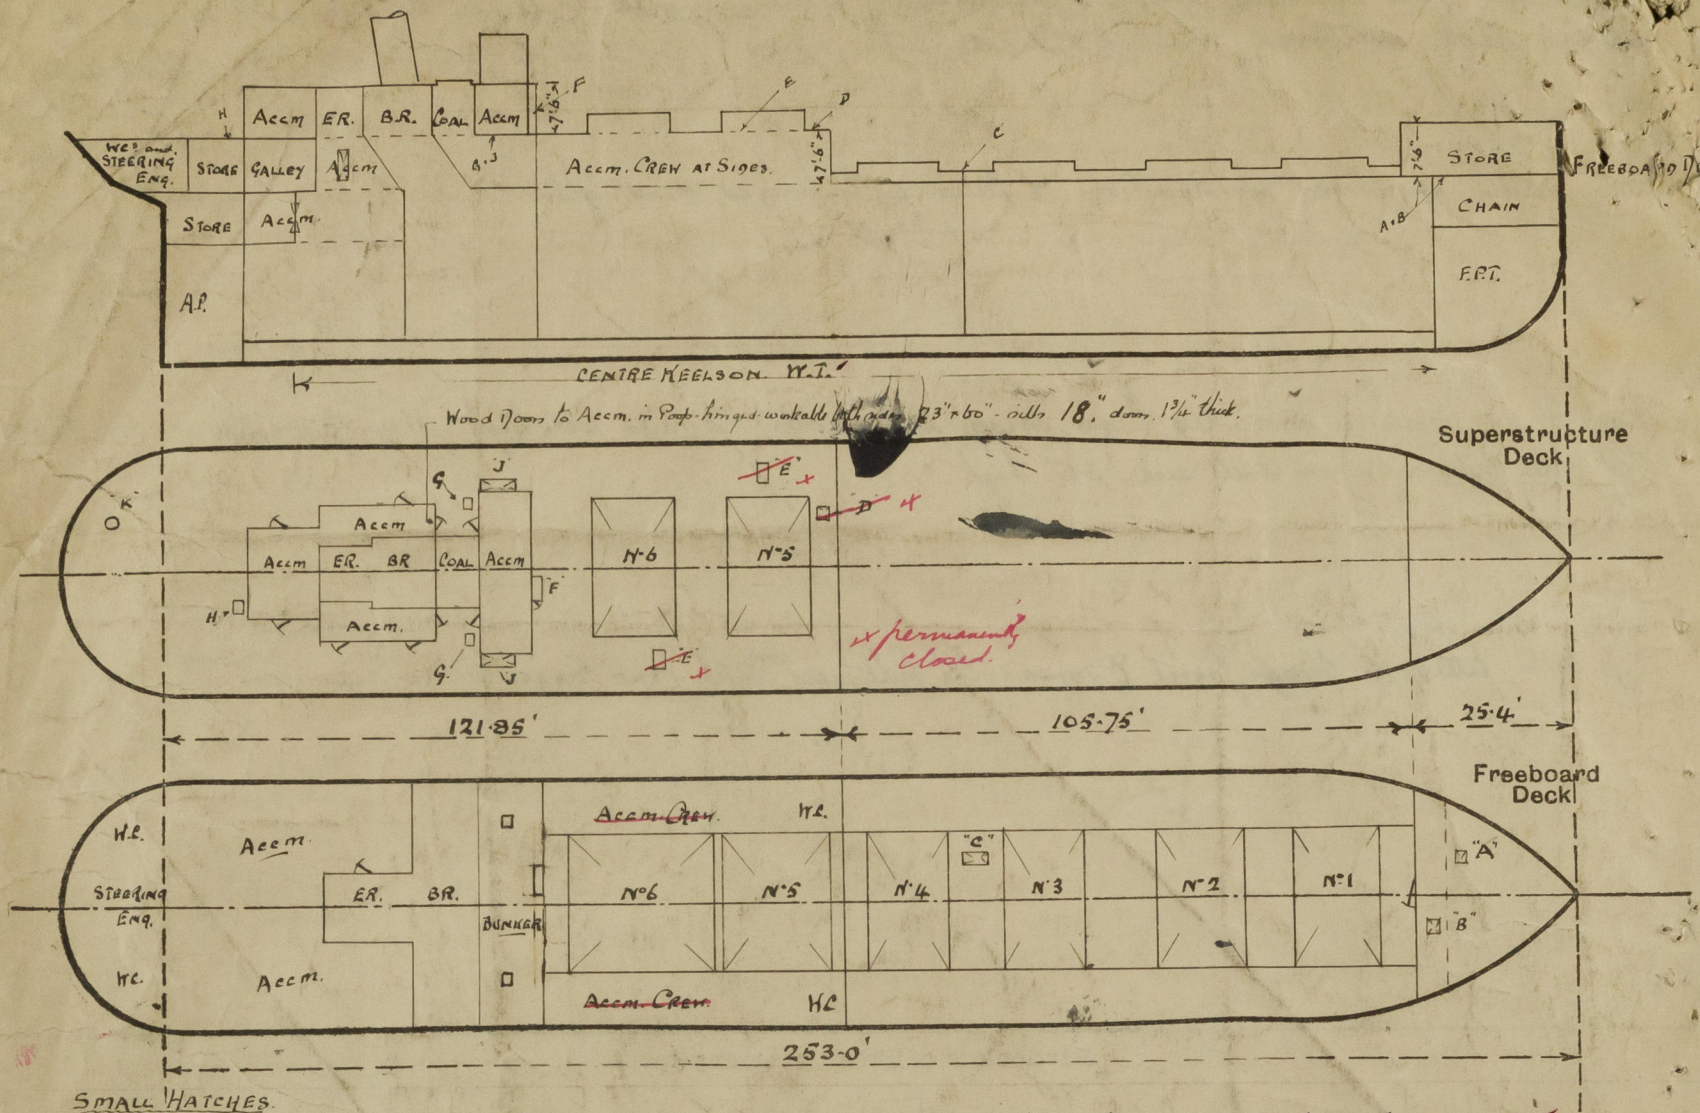 H
Accm
ER.
B.R.
COAL
Accm
7'6"
F
E
D
C
WCs and
STEERING
ENG.
STORE
GALLEY
Accm
G.J
Accm. CREW AT SIDES.
7'6"
7'6"
STORE
STORE
Accm.
A+B
CHAIN
A.P.
F.P.T.
CENTRE KEELSON. W.T.
Wood Doors to Accm. in Poop hinged workable 23"x60" - sills 18." doors 1 3/4" thick.
Superstructure
Deck
K
G
J
"E" x
D x
Accm
Accm
ER.
BR
COAL
Accm
No 6
No 5
F
H
Accm.
G.
J
"E" x
x permanently
closed.
121.85'
105.75'
25.4'
Freeboard
Deck
W.C.
Accm.
Accm. Crew.
W.C.
"C"
"A"
STEERING
ENG.
ER.
BR.
BUNKER
No 6
No 5
No 4
No 3
No 2
No 1
"B"
W.C.
Accm.
Accm. Crew.
WC
253.0'
SMALL HATCHES.